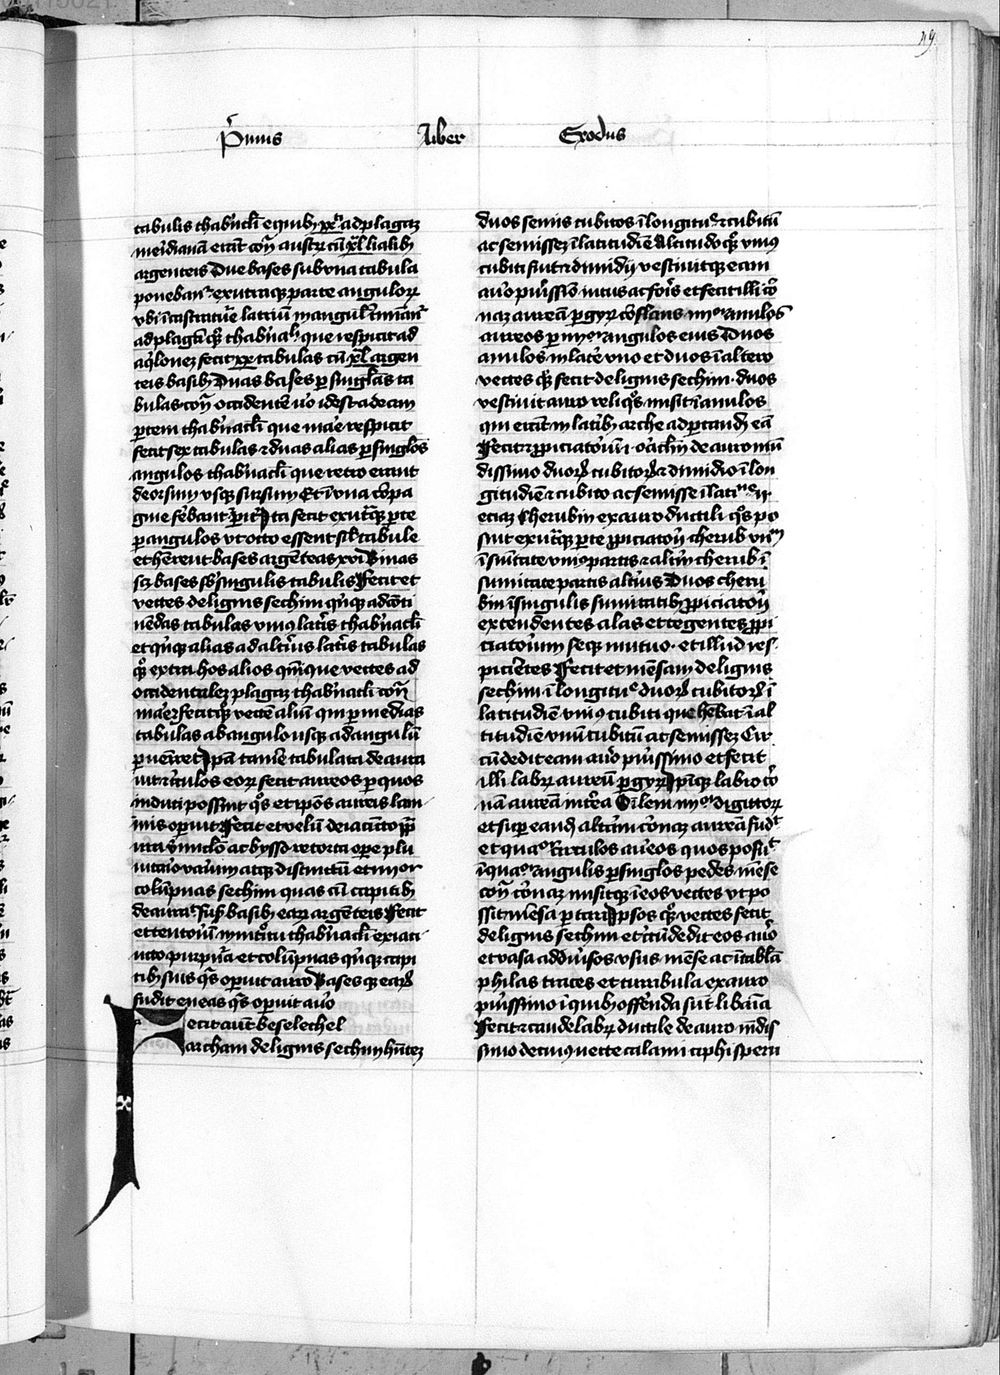 49
Primus Liber Exodus
tabulis thabnacli e quib xxti ad plagaz
meridianā erāt cont austrū cū xl lialib
argenteis Due bases sub vna tabula
ponebant ex utraque parte angulorum
vbi ī castrature laterum in angulis
ad plagā quoque thabnacli que respicit ad
aqlonez fecit xx tabulas cū xl argen
teis basib Duas bases per singlas ta
bulas cont occidentē vo id est ad eam
partem thabnacli que mare respicit
fecit sex tabulas et duas alias p singlos
angulos thabnacli que retro erant
deorsum vsque sursum Et ī vna cōpa
gine pariter Ita fecit ex utraque pte
p angulos vt octo essent sil tabule
et hēent bases argēteas xvi Binas
scz bases sb singulis tabulis Fecit et
vectes de lignis sechim qnque ad cōti
nēdas tabulas vnius lateris thabnacli
et qnque alias ad altius lateris tabulas
et extra hos alios quinque vectes ad
occidentalez plagaz thabnacli cont
mare fecitque vectē aliū qui p medias
tabulas ab angulo usque ad angulū
pueniret Ipā tamē tabulata deaura
uit et circulos eorum fecit aureos p quos
induci possint quos et ipos aureis lam
inis opuit Fecit et velū de iacincto pp
ura vmiclo ac bysso retorta ope plu
mario varium atque distinctū et iiiior
colūpnas sechim quas cū capitib
deauratis basib earum argēteis Fecit
et tentoriū in introitu thabnacli ex iaci
ncto purpura et colūpnas qnque cū capi
tib suis qs opuit auro Bases que earum
fudit eneas qs opuit auro
Fecit autē beselechel
archam de lignis sechim hntez
duos semis cubitos ī longitudine et cubitū
ac semissez ī latitudīe Altitudo quoque vnius
cubiti fuit et dimidij vestiuitque eam
auro purissīo intus ac foris et fecit illi co
nāz aureā p gyrum cōflans iiiior anulos
aureos p iiiior angulos eius Duos
anulos in latere vno et duos ī altero
vectes quoque fecit de lignis sechim duos
vestiuit auro reliqs misit ī anulos
qui erāt in latib arche ad portandū eā
Fecit et ppiciatoriū i oraclm de auro mū
dissimo duorum cubitorum et dimidio ī lon
gitudīe et cubito ac semisse ī latine ij
etiaz Cherubin ex auro ductili qs po
suit ex utraque parte ppiciatorij cherub vnum
ī sūitate vnius partis et altum cherub ī
sumitate partis altius Duos cheru
bin ī singulis sumitatib ppiciatorij
extendentes alas et tegentes ppi
ciatorium seque mutuo et illud res
picientes Fecit et mēsam de lignis
sechim ī longitudine duorum cubitorum ī
latitudīe vnius cubiti que hebat ī al
titudīe vnum cubitū ac semissez Cir
cūdedit eam auro purissimo et fecit
illi labium aureū p gyrum Ipique labio co
nam aureā interea Dilem iiiior digitorum
et super eandē altam coronaz aureā fudit
et quatuor circulos aureos quos posuit
ī quatuor angulis p singlos pedes mēse
cont coronaz misitque ī eos vectes vt po
ssit mēsa portari Ipsos quoque vectes fecit
de lignis sechim et circūdedit eos auro
et vasa ad diuersos vsus mense acetabla
phialas et turribula ex auro
purissimo ī quib offerenda sūt libamīa
Fecit et candelabrum ductile de auro mūdis
simo de cuius vecte calami ciphi speru